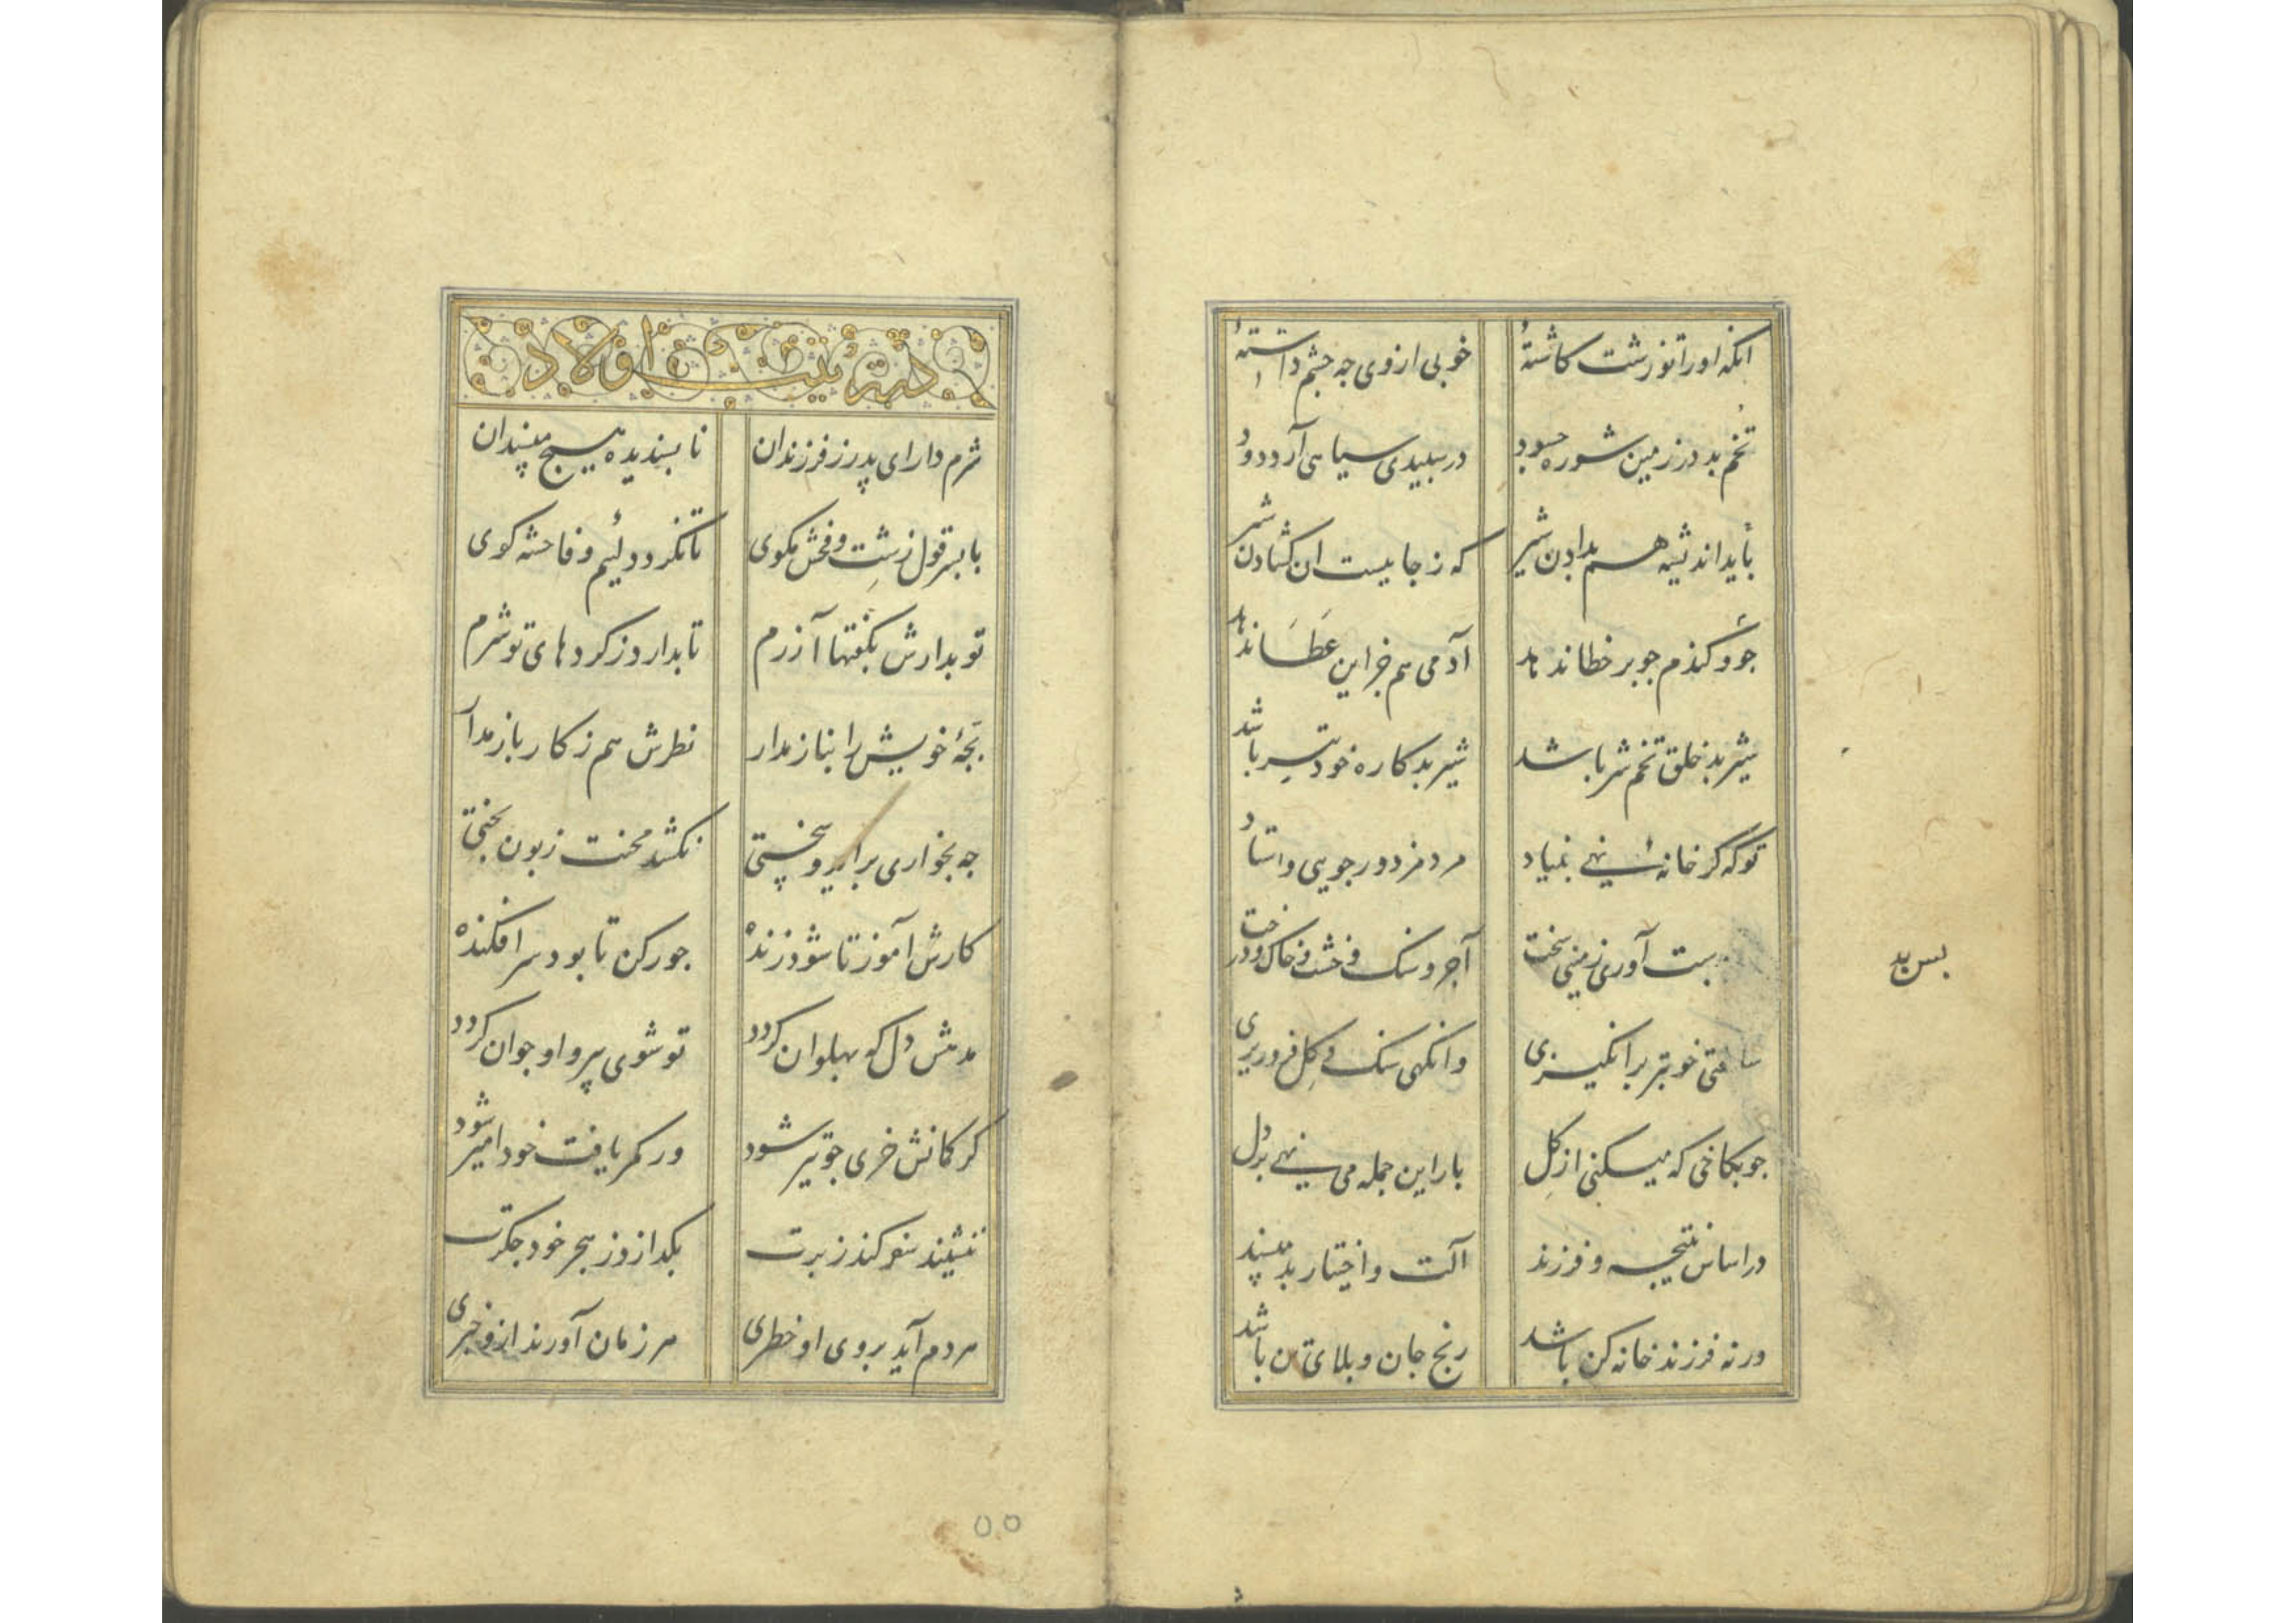 انکه اورا تو زشت کاشتهٔ خوبی ازوی جه جشم داشتهٔ
تخم بد در زمین شوره جسود در سبیدی سیاهی آرد دود
باید اندیشه هم بدادن شیر که ز جاییست ان کشادن شیر
جو و کندم جو بر خطا ندهد آدمی هم جز این عَطَا ندهد
شیر بد خلق تخم شر باشد شیر بدکاره خود بتر باشد
تو که کر خانهٔ نهی بنیاد مرد مزدور جویی و استاد
بدست آوری زمینی سخت آجر و سنک و خشت و خاک و درخت
ساعتی خوبتر برانکیزی وانکهی سنک و کِل فرو ریزی
جو بکاخی که میکنی از کِل بار این جمله می نهی بر دل
در اساس نتیجه و فرزند آلت و اختیار بد مپسند
ورنه فرزند خانه کن باشد رنج جان و بلای تن باشد
بس بد
در تربیت اولاد
شرم دار ای پدر ز فرزندان نابسندیده هیچ مپسند ان
با بسر قول زشت و فحش مکوی تا نکردد لئیم و فاحشه کوی
تو بدارش بکفتها آزرم تا بدارد ز کردهای تو شرم
بچهٔ خویش را بناز مدار نظرش هم ز کار باز مدار
جه بخواری براید و سختی نکشد محنت زبون بختی
کارش آموز تا شود زنده جور کن تا بود سر افکنده
مدهش دل که بهلوان کردد تو شوی پیر و او جوان کردد
کر کمانش خری جو تیر شود ور کمر یافت خود امیر شود
ننشیند سفر کند ز برت بکدازد ز هجر خود جکرت
مردم آید بروی او خطری هر زمان آورند ازو خبری
٥٥